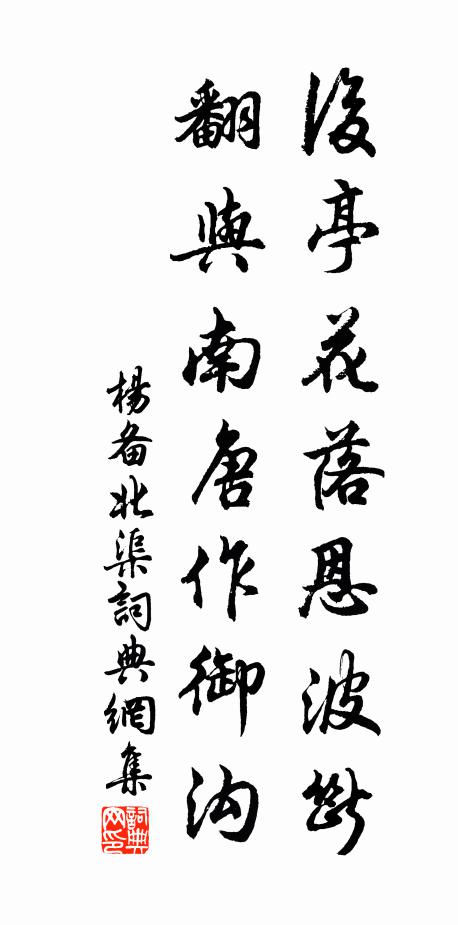 後亭花落恩波斷
翻與南唐作御沟
楊备北渠詞典網集
詞典网印